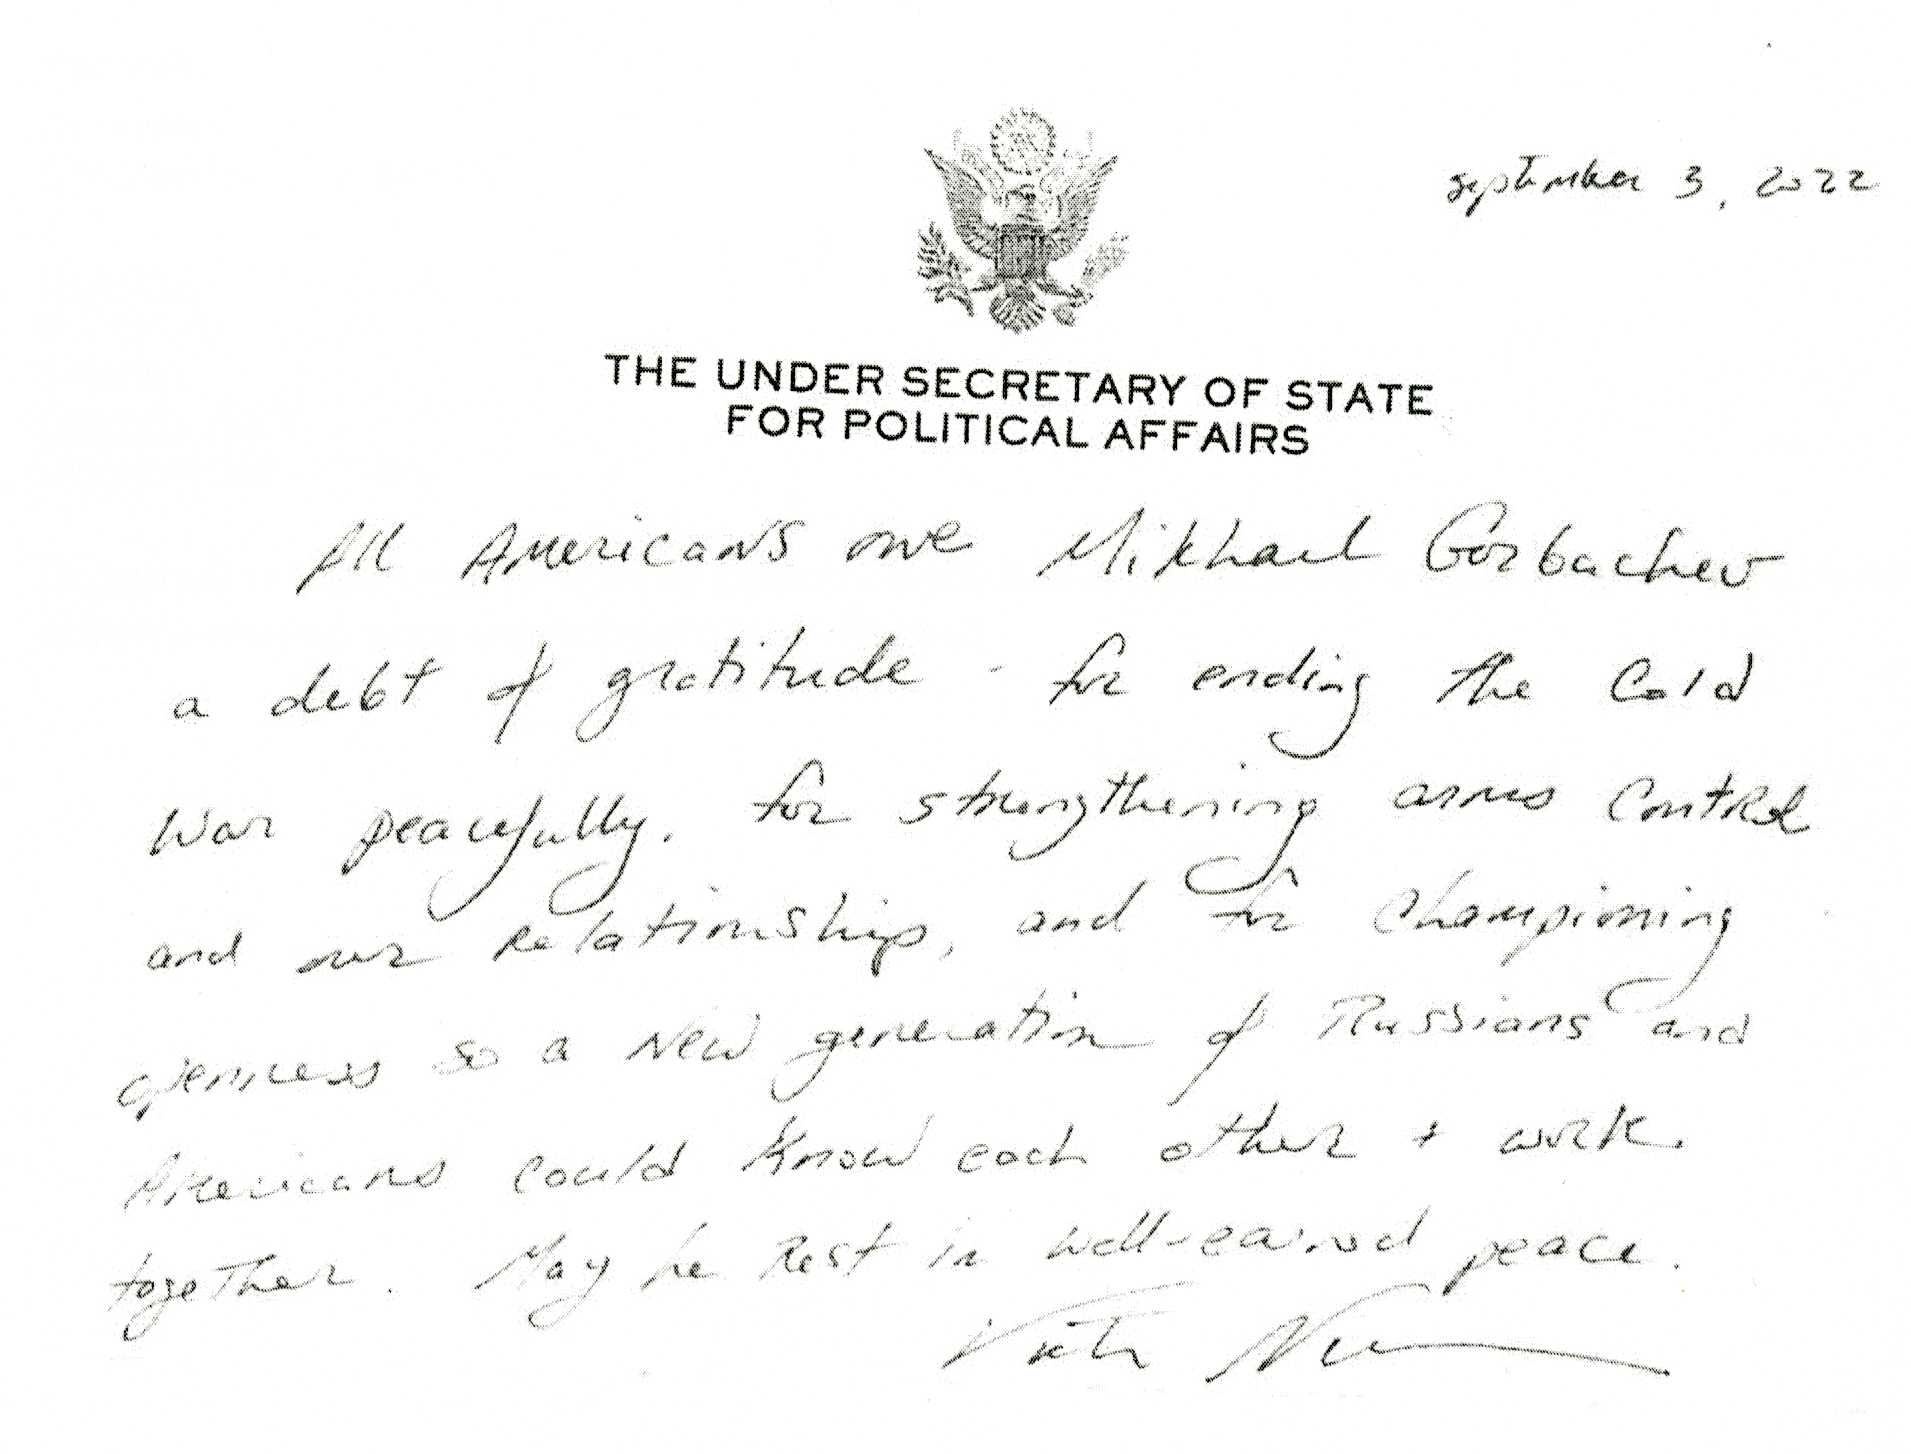 September 3, 2022
THE UNDER SECRETARY OF STATE
FOR POLITICAL AFFAIRS
All Americans owe Mikhail Gorbachev
a debt of gratitude - for ending the Cold
War peacefully, for strengthening arms control
and our relationship, and for championing
openness so a new generation of Russians and
Americans could know each other + work
together. May he rest in well-earned peace.